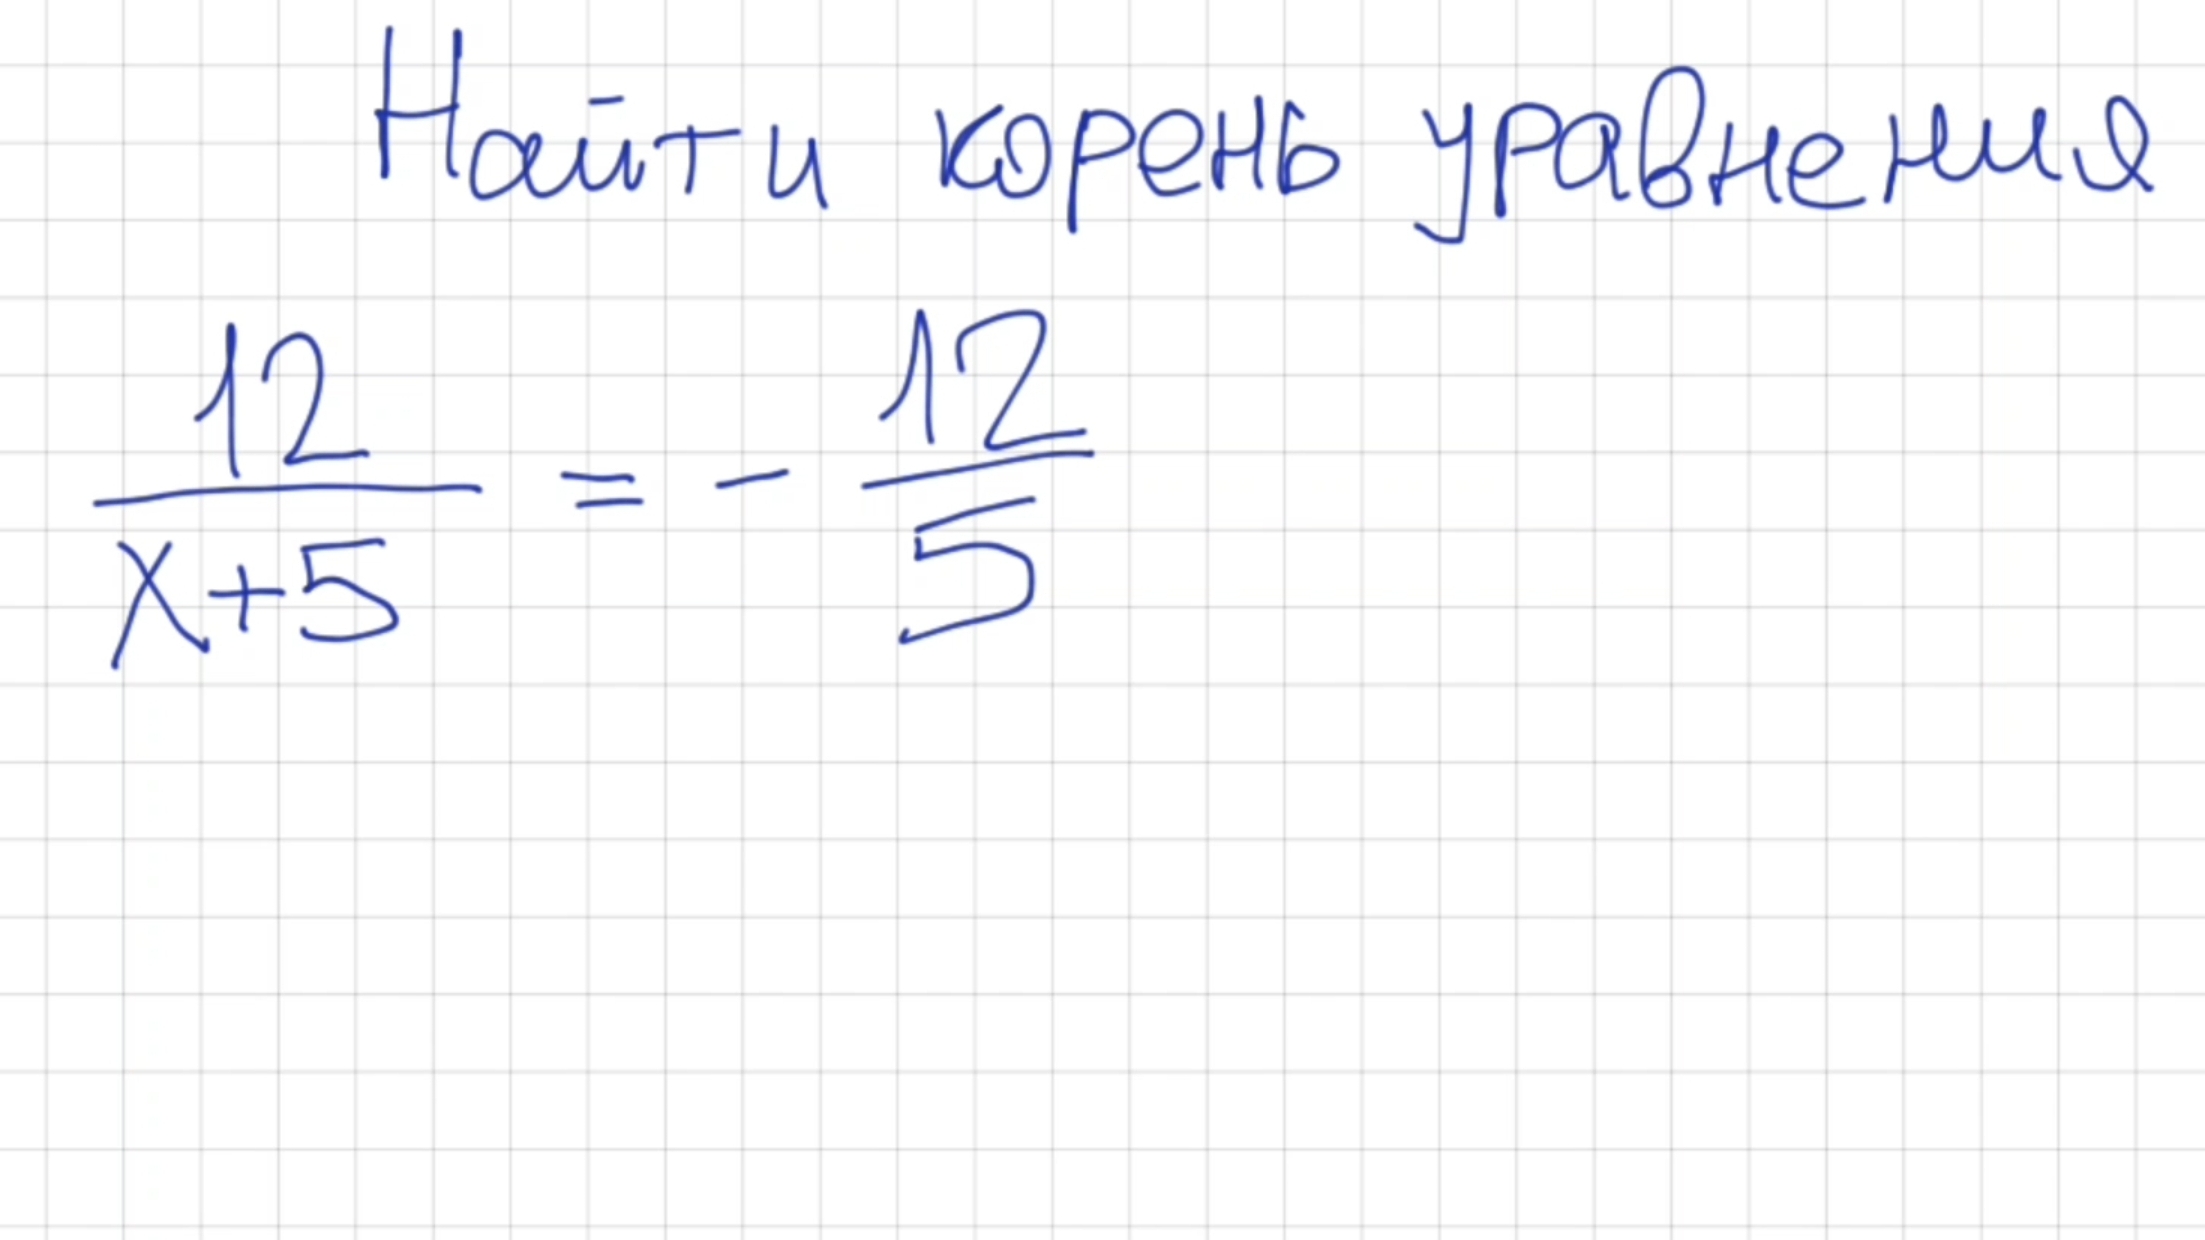 Найти корень уравнения
12/(x+5) = - 12/5